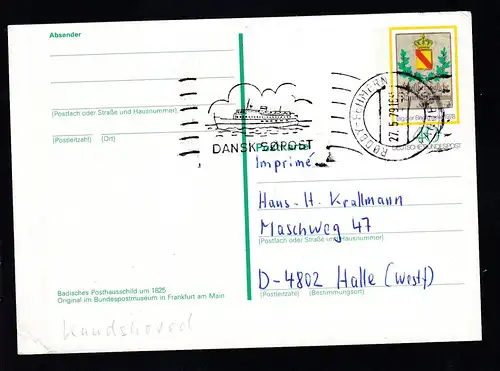 Absender
(Postfach oder Straße und Hausnummer)
(Postleitzahl) (Ort)
DANSK SØPOST
27.5.79
DEUTSCHE BUNDESPOST
Imprimé
Hans-H. Krallmann
Maschweg 47
(Postfach oder Straße und Hausnummer)
D-4802 Halle (Westf)
(Postleitzahl) (Bestimmungsort)
Badisches Posthausschild um 1825
Original im Bundespostmuseum in Frankfurt am Main
Knudshoved